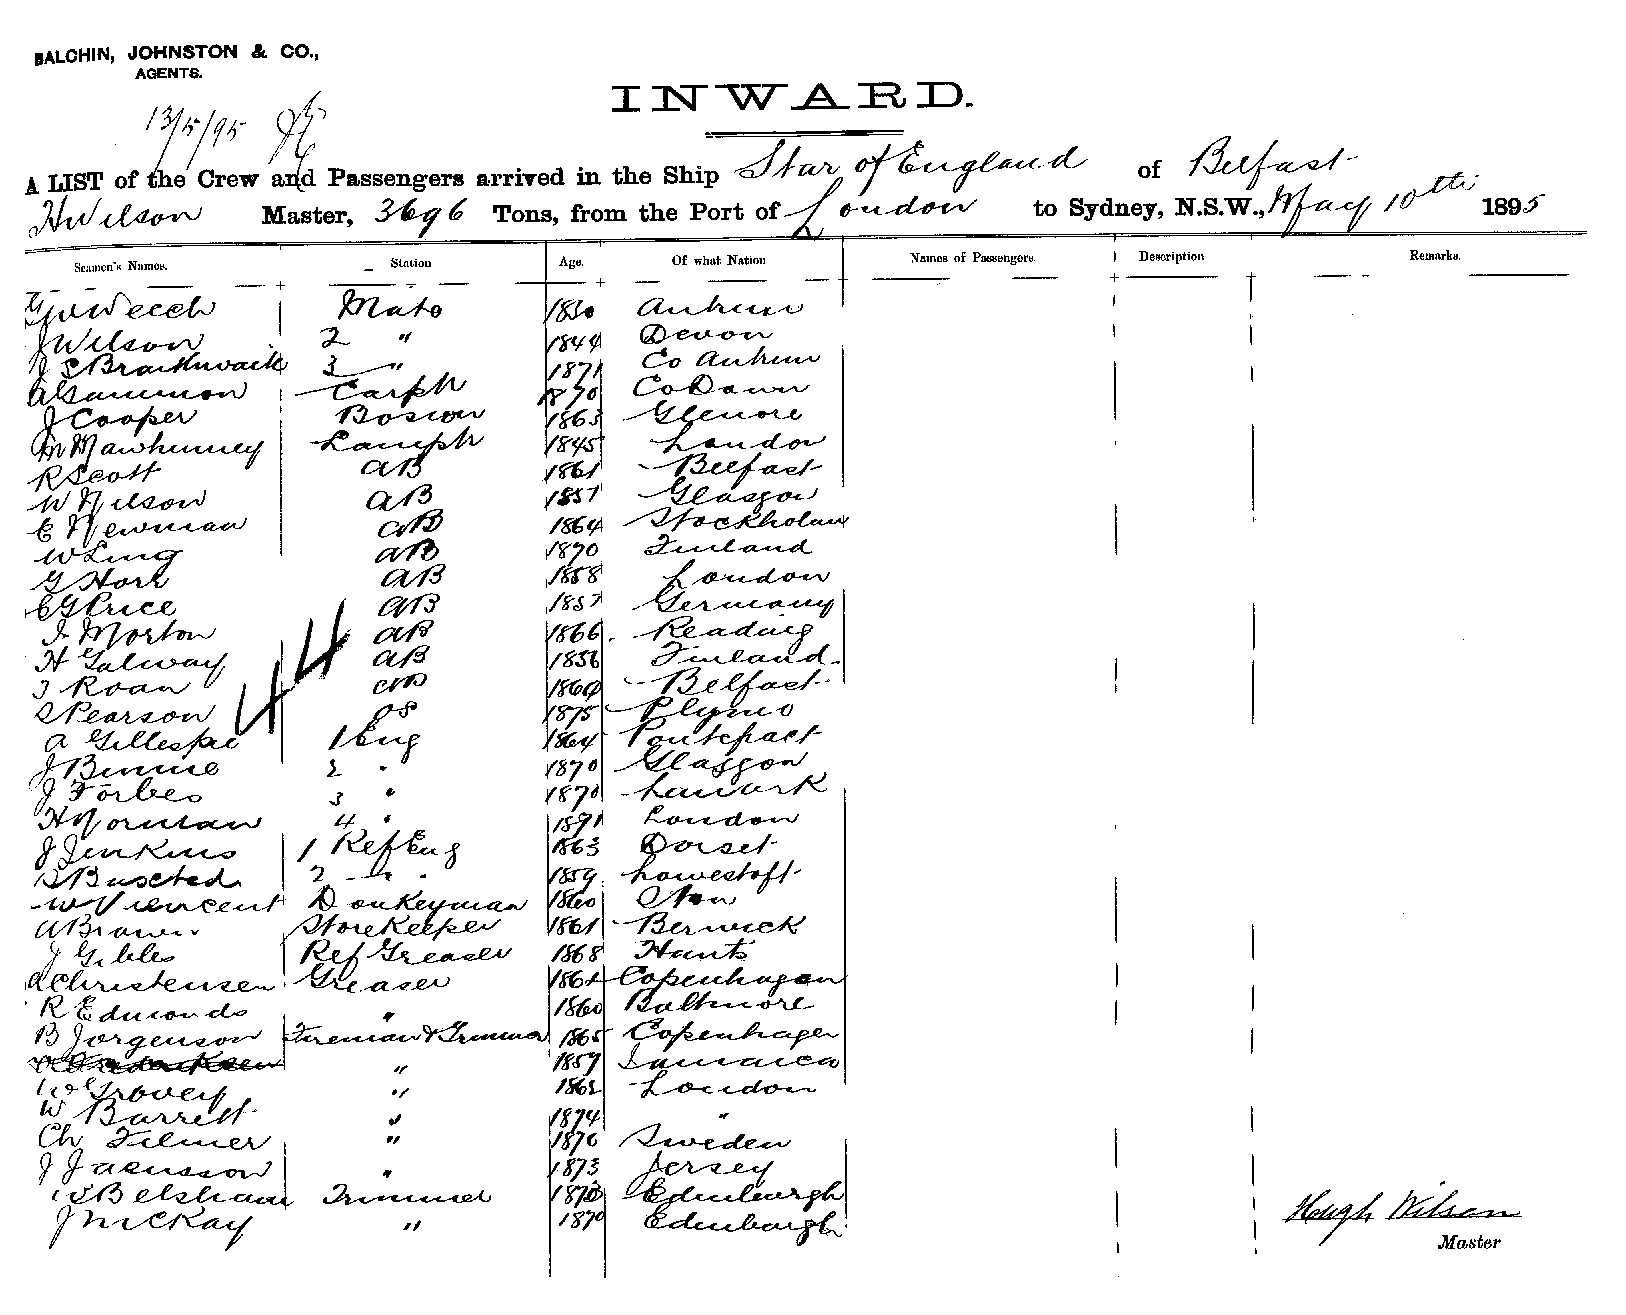 BALCHIN, JOHNSTON & CO.,
AGENTS.
13/5/95
INWARD.
A LIST of the Crew and Passengers arrived in the Ship Star of England of Belfast
H Wilson Master, 3696 Tons, from the Port of London to Sydney, N.S.W., May 10th 1895
Seamen's Names. Station Age. Of what Nation Names of Passengers. Description Remarks.
Mate 1850 Antrim
J Wilson 2 " 1844 Devon
J C Braithwaite 3 " 1871 Co Antrim
A Gammon Carptr 1870 Co Down
J Cooper Boswn 1863 Glenore
M Mawhinney Lamptr 1845 London
R Scott AB 1861 Belfast
W Nilson AB 1857 Glasgow
C Newman AB 1864 Stockholm
W Ling AB 1870 Finland
G Hork AB 1858 London
C G Price AB 1857 Germany
J Morton AB 1866 Reading
H Galway AB 1856 Finland
J Roan AB 1860 Belfast
S Pearson OS 1875 Plymo
A Gillespie 1 Eng 1864 Pontefract
J Binnie 2 " 1870 Glasgow
J Forbes 3 " 1870 Lanark
H Norman 4 " 1871 London
J Jenkins 1 Ref Eng 1863 Dorset
S Busted 2 " " 1859 Lowestoft
W Viencent Donkeyman 1860
A Brown Storekeeper 1861 Berwick
J Gibles Ref Greaser 1868 Hants
A Christensen Greaser 1864 Copenhagen
R Edmonds " 1860 Baltimore
B Jorgenson Fireman & Trimmer 1865 Copenhagen
" 1857 Jamaica
W Grovery " 1862 London
W Barrett " 1874 "
Ch Filmer " 1876 Sweden
J Jaensson " 1873 Jersey
W Belsham Trimmer 1873 Edinburgh
J McKay " 1870 Edinburgh
Hugh Wilson
Master